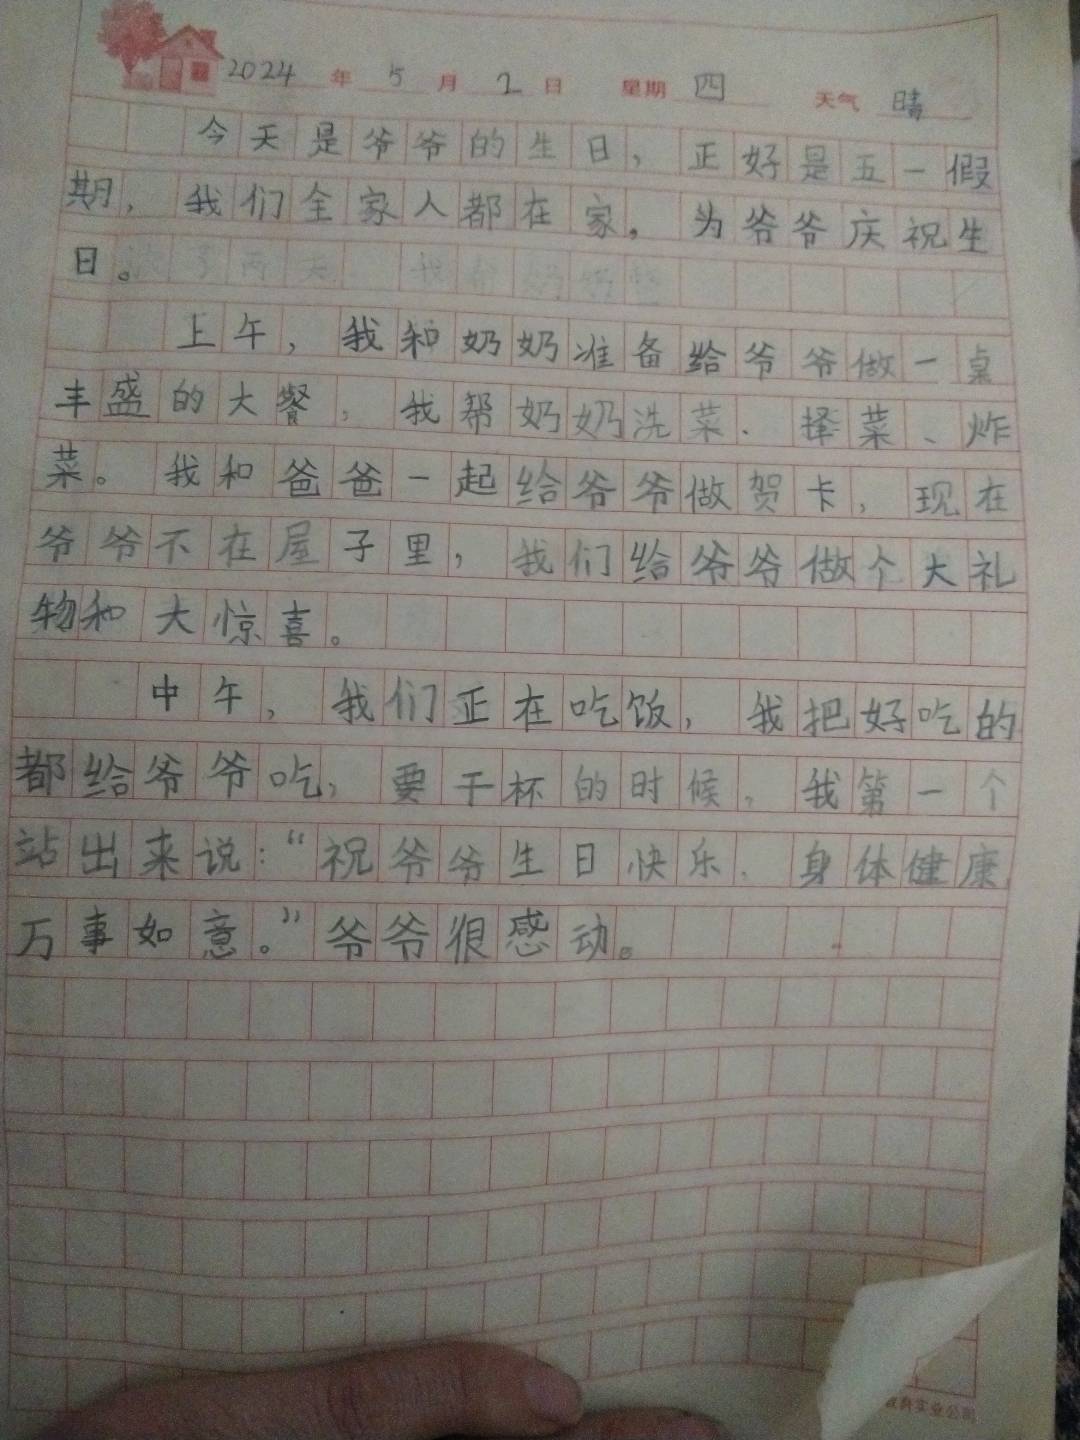 2024年5月2日 星期四 天气 晴
今天是爷爷的生日，正好是五一假
期，我们全家人都在家，为爷爷庆祝生
日。
上午，我和奶奶准备给爷爷做一桌
丰盛的大餐，我帮奶奶洗菜、择菜、炸
菜。我和爸爸一起给爷爷做贺卡，现在
爷爷不在屋子里，我们给爷爷做个大礼
物和大惊喜。
中午，我们正在吃饭，我把好吃的
都给爷爷吃，要干杯的时候，我第一个
站出来说：“祝爷爷生日快乐、身体健康，
万事如意。”爷爷很感动。
教育实业公司